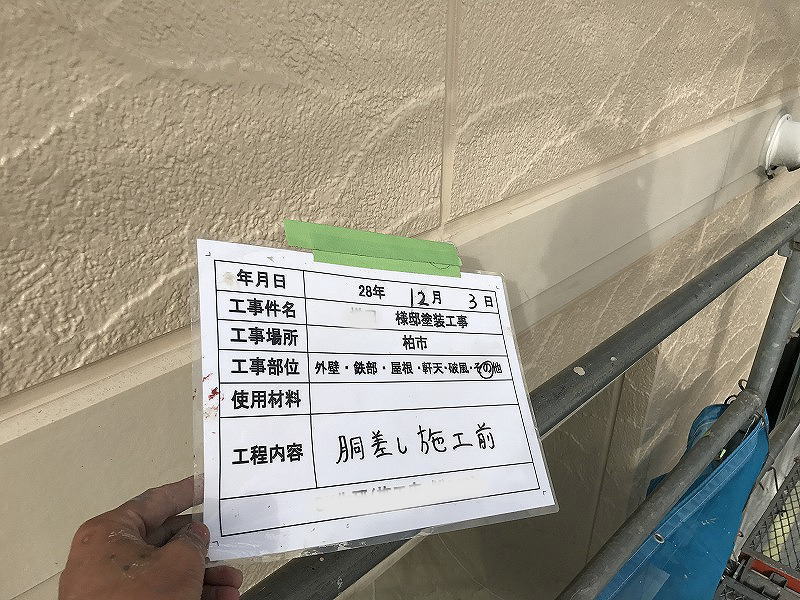 年月日 28年 12月 3日
工事件名 様邸塗装工事
工事場所 柏市
工事部位 外壁・鉄部・屋根・軒天・破風・その他
使用材料
工程内容 胴差し施工前